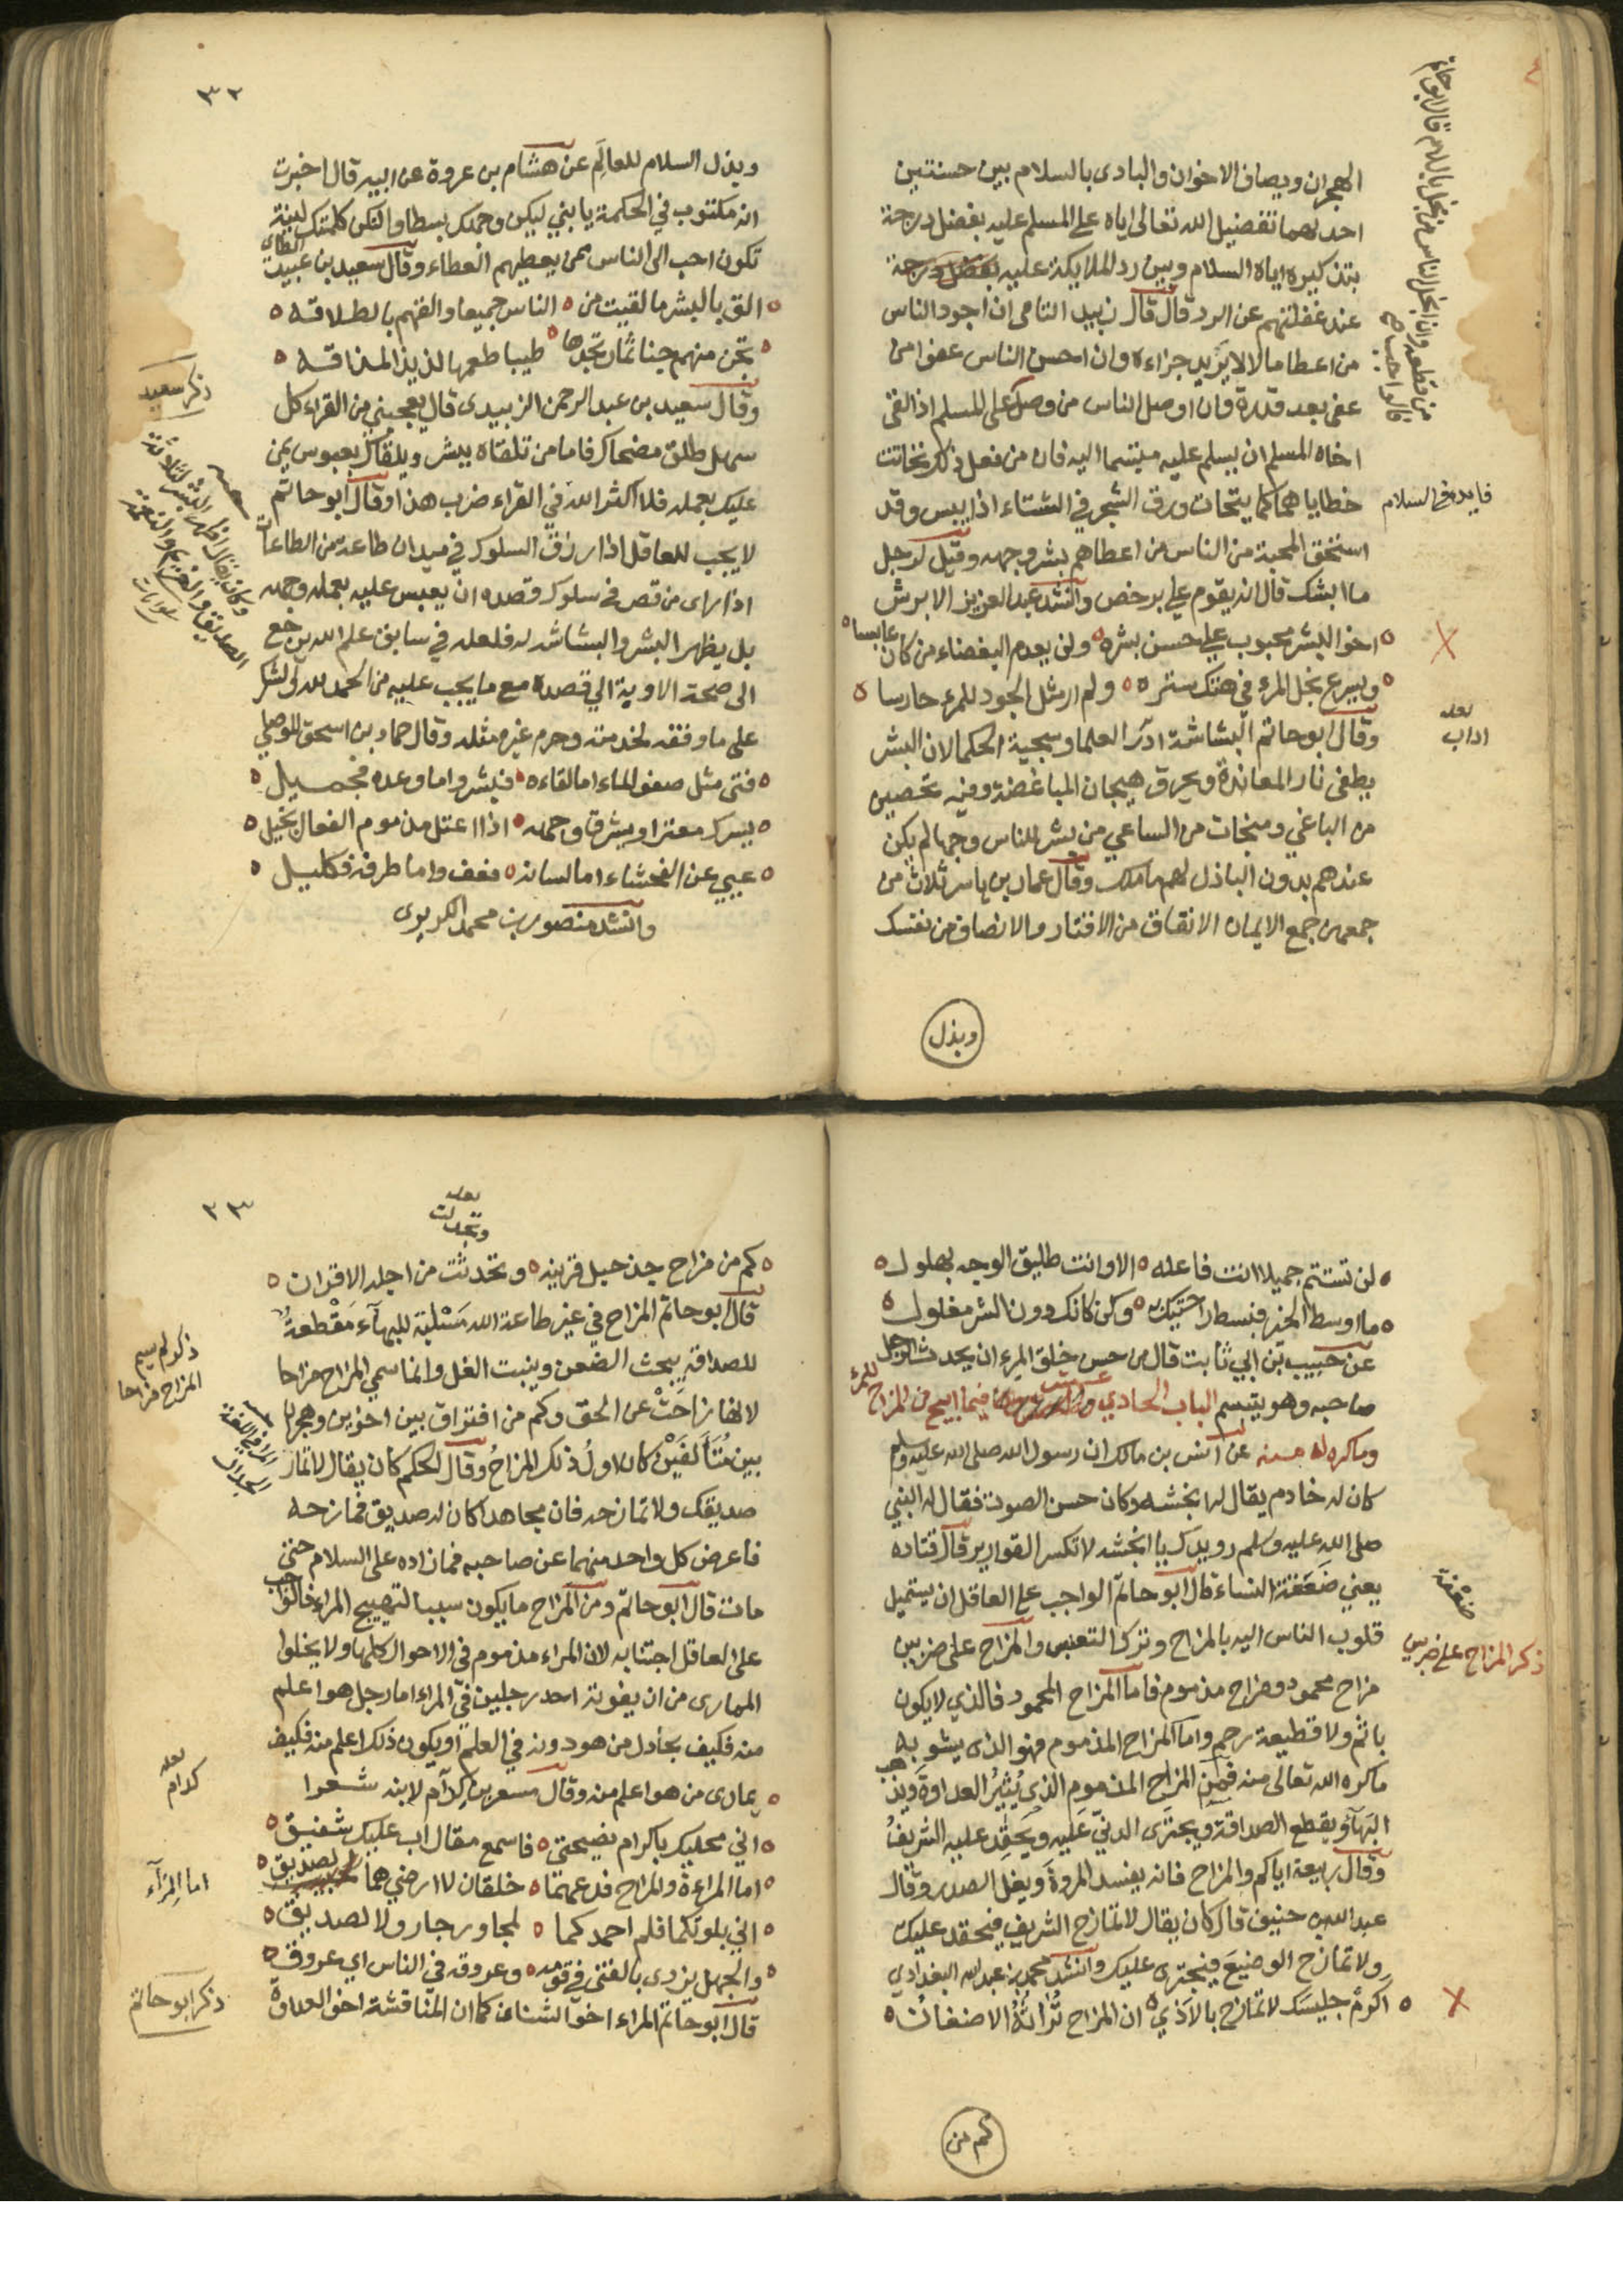 الهجران ويصاف الاخوان والبادى بالسلام بين حسنتين
احدىهما تفضيل الله تعالى اياه على المسلم عليه بفضل درجة
بتذكيره اياه السلام وبين رد الملايكة عليه
عند غفلتهم عن الرد قال قال زبيد اليامى ان اجود الناس
من اعطا مالا لا يريد جزاءه وان احسن الناس عفوا من
عفى بعد قدرة وان اوصل الناس من وصل على المسلم اذا لقى
اخاه المسلم ان يسلم عليه مبتسما اليه فان من فعل ذلك تحاتت
خطاياهما كما يتحات ورق الشجر في الشتاء اذا يبس وقد
فايدة في السلام
استحق المحبة من الناس من اعطاهم بشر وجهه وقيل لرجل
ما ابشك قال انه يقوم علي برخص وانشد عبد العزيز الابرش
اخو البشر محبوب على حسن بشره ولن يعدم البغضاء من كان عابسا
ويسرع بخل المرء في هتك ستره ولم ار مثل الجود للمرء حارسا
لعله اداب
وقال ابو حاتم البشاشة ادآم العلما وسجية الحكما لان البشر
يطفى نار المعاندة ويحرق هيجان المباغضة وفيه تحصين
من الباغي ومنجات من الساعي من بشر للناس وجها لم يكن
عندهم بدون الباذل لهم ما ملك وقال عمار بن ياسر ثلاث من
جمعهن جمع الايمان الانفاق من الاقتار والانصاف من نفسك
وبذل
٣٢
وبذل السلام للعالم عن هشام بن عروة عن ابيه قال اخبرت
انه مكتوب في الحكمة يا بني ليكن وجهك بسطا ولتكن كلمتك لينة
تكون احب الى الناس ممن يعطيهم العطاء وقال سعيد بن عبيد الطائي
الق بالبشر ما لقيت من الناس جميعا والقهم بالطلاقه
تجن منهم جنا ثمار تجدها طيبا طعمها لذيذ المذاقه
وقال سعيد بن عبد الرحمن الزبيدى قال يعجبني من القراء كل
ذكر سعيد
سهل طلق مضحاك فاما من تلقاه ببشر ويلقاك بعبوس يمن
عليك بعمله فلا اكثر الله في القراء ضرب هذا وقال ابو حاتم
لا يجب للعاقل اذا رزق السلوك في ميدان طاعة من الطاعات
اذا راى من قصر في سلوك قصده ان يعبس عليه بعمله وجهه
بل يظهر البشر والبشاشه له فلعله في سابق علم الله يرجع
الى صحة الاوبة الى قصده مع ما يجب عليه من الحمد لله والشكر
على ما وفقه لخدمته وحرم غيره مثله وقال حماد بن اسحق الموصلي
فتى مثل صفو الماء اما لقاءه فبشر واما وعده فجميل
يسرك معترا ويشرق وجهه اذا اعتل مذموم الفعال بخيل
عيي عن الفحشاء اما لسانه فعف واما طرفه فكليل
وانشد منصور بن محمد الكريوى
لن تستتم جميلا انت فاعله الا وانت طليق الوجه بهلول
ما اوسط الخير فبسط راحتيك وكن كانك دون الشر مغلول
عن حبيب بن ابي ثابت قال من حسن خلق المرء ان يحدث الرجل
صاحبه وهو يتبسم الباب الحادي عشر فيما ابيح من المزاح للمرء
وما كره له منه عن انس بن مالك ان رسول الله صلى الله عليه وسلم
كان له خادم يقال له انجشه وكان حسن الصوت فقال له النبي
صلى الله عليه وسلم رويدك يا انجشه لا تكسر القوارير قال قتاده
يعني ضعفة النساء قال ابو حاتم الواجب على العاقل ان يستميل
ضعفة
قلوب الناس اليه بالمزاح وترك التعبس والمزاح على ضربين
ذكر المزاح على ضربين
مزاح محمود ومزاح مذموم فاما المزاح المحمود فالذي لا يكون
باثم ولا قطيعة رحم واما المزاح المذموم فهو الذى يشوبه
ماكره الله تعالى منه فمن المزاح المذموم الذي يثير العداوة ويذهب
البهآء ويقطع الصداقة ويجترى الدني عليه ويحقد عليه الشريف
وقال ربيعة اياكم والمزاح فانه يفسد المروة ويغل الصدر وقال
عبد الله بن حنيف قال كان يقال لا تمازح الشريف فيحقد عليك
ولا تمازح الوضيع فيجترى عليك وانشد محمد بن عبد الله البغدادي
اكرم جليسك لا تمازح بالاذي ان المزاح تراثه الاضغان
كم من
٣٣
لعله وتجدلت
كم من مزاح جذ حبل قرينه وتحدثت من اجله الاقران
قال ابو حاتم المزاح في غير طاعة الله مسلبة للبهآء مقطعة
للصداقة يبحث الضغن وينبت الغل وانما سمي المزاح مزاحا
ذكر لم سمي المزاح مزاحا
لانها زاحت عن الحق وكم من افتراق بين اخوين وهجران
بين متألفين كان اول ذلك المزاح وقال الحكم كان يقال لا تمار
المراء في اللغة الجدال
صديقك ولا تمازحه فان مجاهدا كان له صديق فمازحه
فاعرض كل واحد منهما عن صاحبه فما زاده على السلام حتى
مات قال ابو حاتم ومن المزاح ما يكون سببا لتهييج المراء فالواجب
على العاقل اجتنابه لان المراء مذموم في الاحوال كلها ولا يخلوا
الممارى من ان يفوته احد رجلين في المراء اما رجل هو اعلم
منه فكيف يجادل من هو دونه في العلم او يكون ذلك اعلم منه فكيف
يمارى من هو اعلم منه وقال مسعر بن كدآم لابنه شعرا
لعله كدام
اني محليك ياكرام نصيحتى فاسمع مقال اب عليك شفيق
اما المزاحة والمراء فدعهما خلقان لا ارضيهما لصديق
اما المرآء
اني بلوتكما فلم احمدكما لمجاور جار ولا لصديق
والجهل يزرى بالفتى في قومه وعروقه في الناس اي عروق
قال ابو حاتم المراء اخو الشناءن كما ان المناقشة اخو العداوة
ذكر ابو حاتم